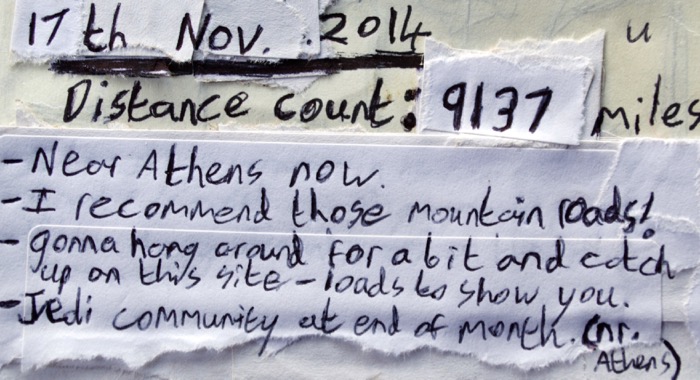 17th Nov. 2014
u
Distance count: 9137 miles
- Near Athens now.
- I recommend those mountain roads!
- gonna hang around for a bit and catch
up on this site - loads to show you.
- Jedi community at end of month. (nr.
Athens)